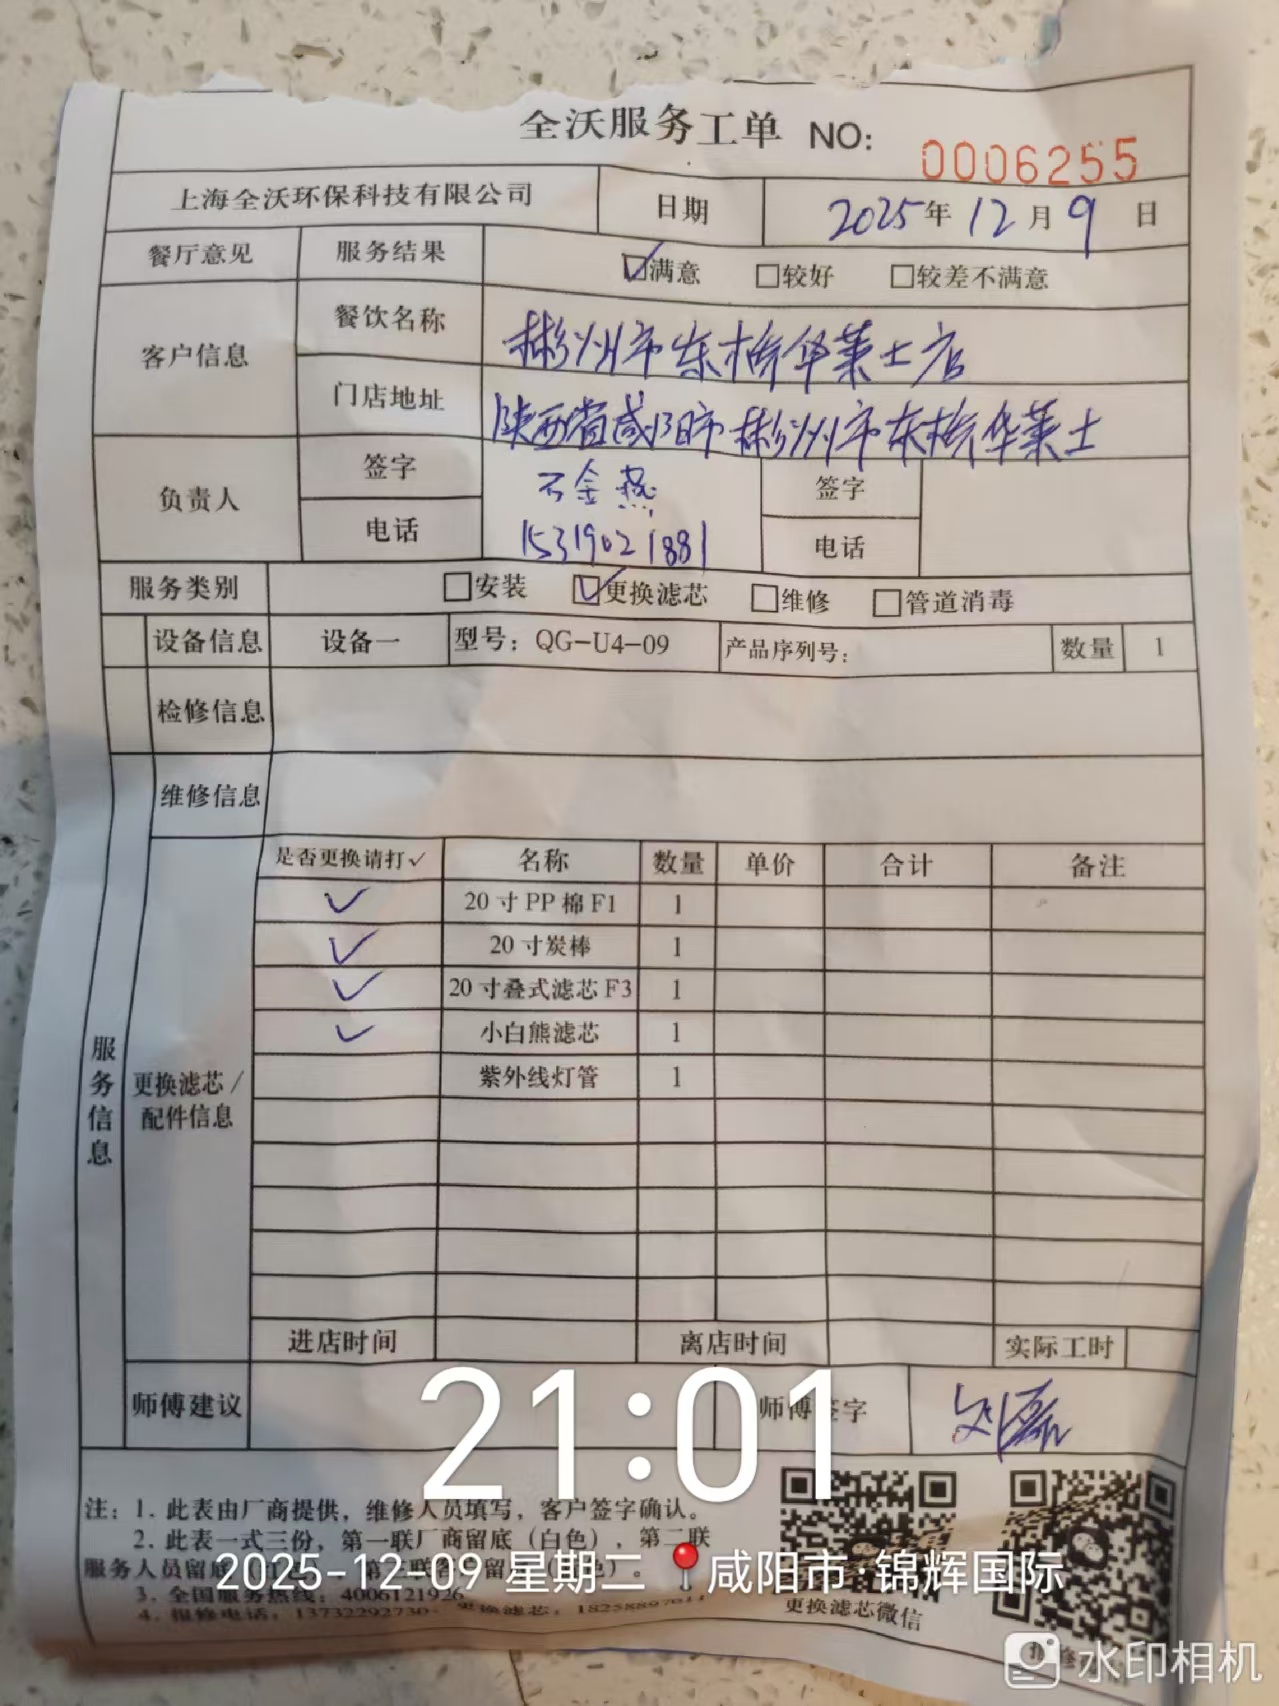 全沃服务工单 NO: 0006255
上海全沃环保科技有限公司 日期 2025年12月9日
餐厅意见 服务结果 ☑满意 □较好 □较差不满意
客户信息 餐饮名称 彬州市东桥华莱士店
门店地址 陕西省咸阳市彬州市东桥华莱士
负责人 签字 石金燕 签字
电话 15319021881 电话
服务类别 □安装 ☑更换滤芯 □维修 □管道消毒
设备信息 设备一 型号：QG-U4-09 产品序列号： 数量 1
检修信息
维修信息
是否更换请打✓ 名称 数量 单价 合计 备注
✓ 20寸PP棉F1 1
✓ 20寸炭棒 1
✓ 20寸叠式滤芯F3 1
✓ 小白熊滤芯 1
紫外线灯管 1
服务信息
更换滤芯/
配件信息
进店时间 离店时间 实际工时
师傅建议 师傅签字 刘磊
21:01
注：1. 此表由厂商提供，维修人员填写，客户签字确认。
2. 此表一式三份，第一联厂商留底（白色），第二联
服务人员留底
2025-12-09 星期二 咸阳市·锦辉国际
3. 全国服务热线：4006121926
4. 报修电话：13732292730 更换滤芯：
更换滤芯微信
水印相机